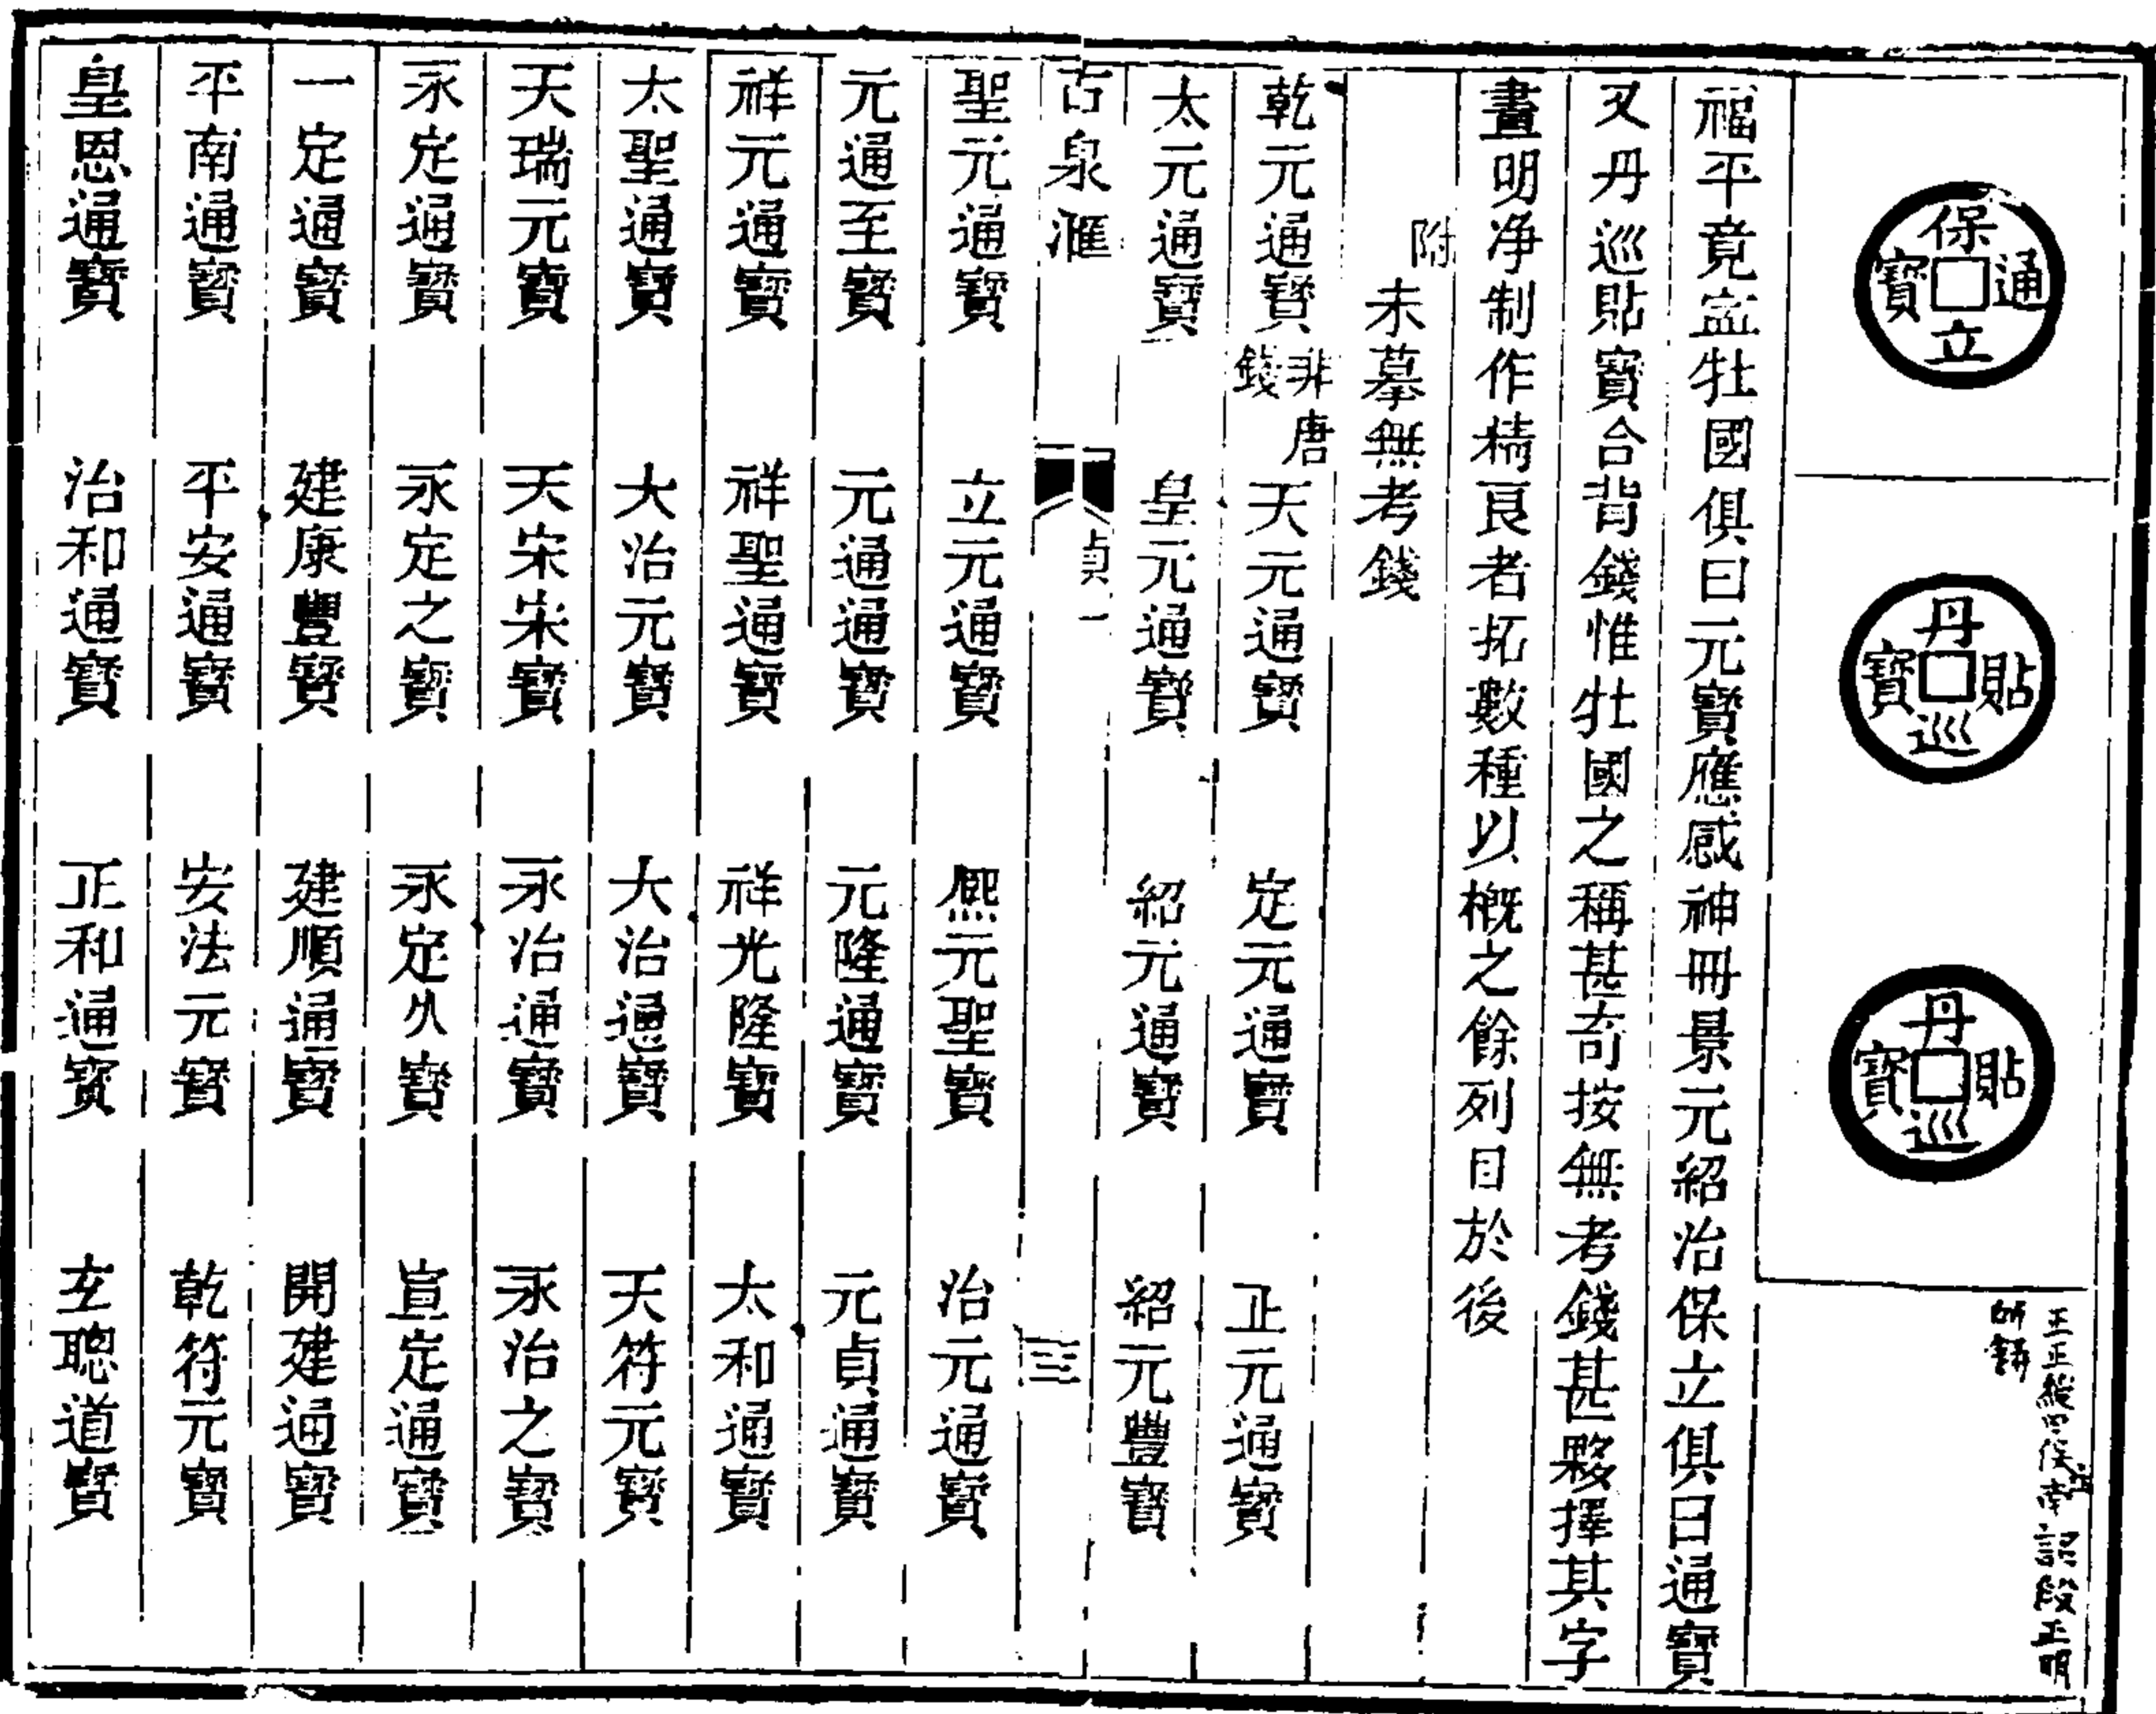 保立通寶
丹巡貼寶
丹巡貼寶
福平竟寍牡國俱曰元寶應感神冊景元紹治保立俱曰通寶
又丹巡貼寶合背錢惟牡國之稱甚奇按無考錢甚夥擇其字
畫明净制作精良者拓數種以概之餘列目於後
附
未摹無考錢
乾元通寶 非唐錢 天元通寶 定元通寶 正元通寶
太元通寶 皇元通寶 紹元通寶 紹元豐寶
古泉滙 貞一 三
聖元通寶 立元通寶 熈元聖寶 治元通寶
元通至寶 元通通寶 元隆通寶 元貞通寶
祥元通寶 祥聖通寶 祥光隆寶 太和通寶
太聖通寶 大治元寶 大治通寶 天符元寶
天瑞元寶 天宋宋寶 永治通寶 永治之寶
永定通寶 永定之寶 永定久寶 宣定通寶
一定通寶 建康豐寶 建順通寶 開建通寶
平南通寶 平安通寶 安法元寶 乾符元寶
皇恩通寶 治和通寶 正和通寶 玄聰道寶